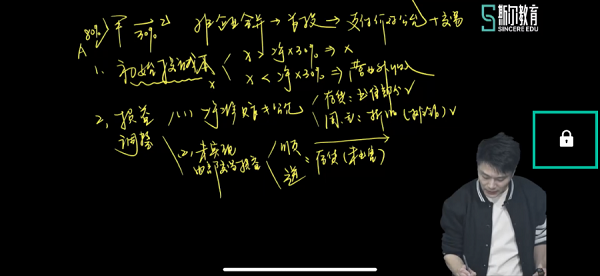 80% A 甲 → 乙 30% 非企业合并 → 首段 → 支付价的公允 + 交易
斯尔教育
SINCERE EDU
1. 初始投资成本 x > 净×30% ⇒ x
x < 净×30% ⇒ 营业外收入
2. 损益调整 (1) 净资产账≠公允 存货: 出售部分 ✓
固、无: 折旧(摊销) ✓
(2) 未实现内部交易损益 顺 逆 : 存货(未出售)